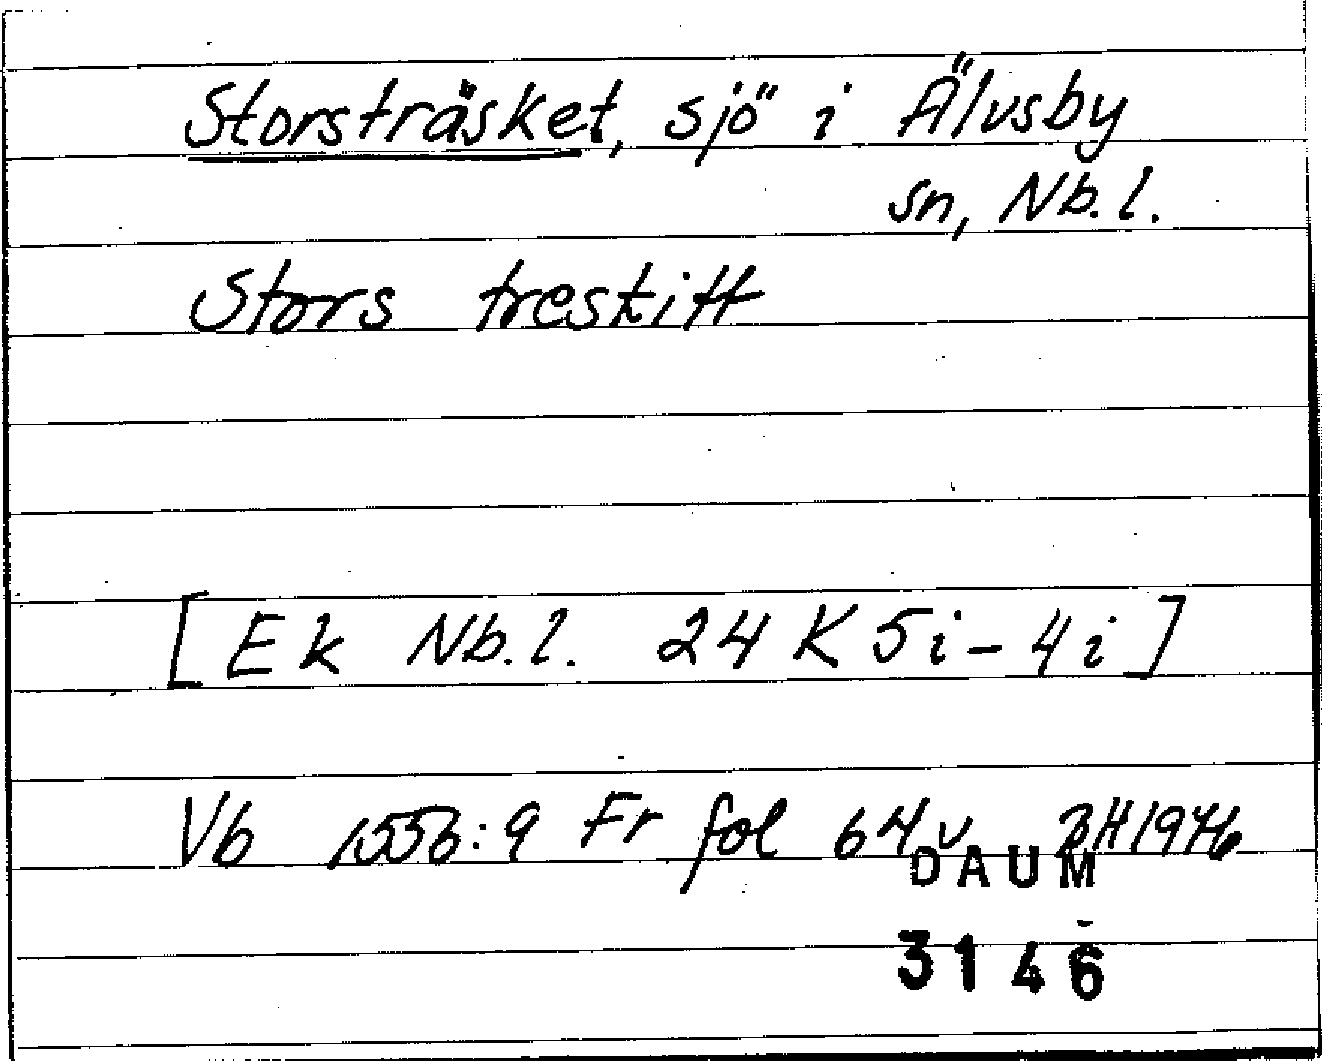 Storsträsket, sjö i Älvsby
sn, Nb.l.
Stors treskitt
[Ek Nb.l. 24 K 5i-4i]
Vb 1556:9 Fr fol 64 v BH 1976
DAUM
3146